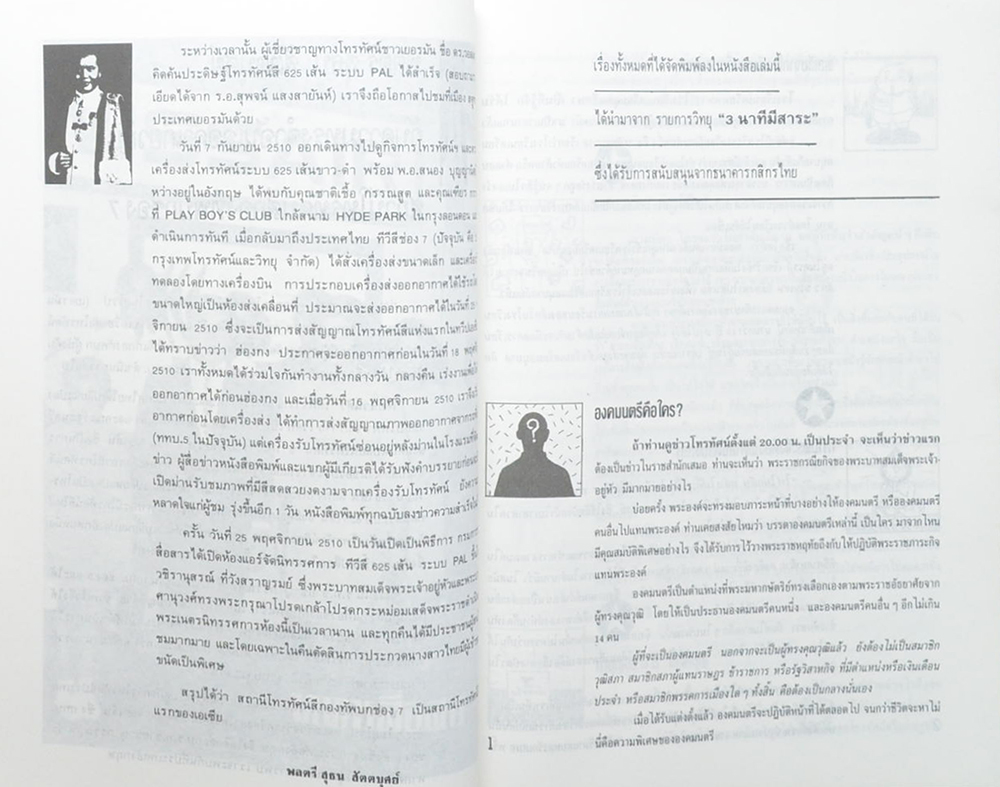 ระหว่างเวลานั้น ผู้เชี่ยวชาญทางโทรทัศน์ชาวเยอรมัน ชื่อ ดร.
คิดค้นประดิษฐ์โทรทัศน์สี 625 เส้น ระบบ PAL ได้สำเร็จ
เอียดได้จาก ร.อ.สุพจน์ แสงสายันห์) เราจึงถือโอกาสไปชมที่เมือง
ประเทศเยอรมันด้วย
วันที่ 7 กันยายน 2510 ออกเดินทางไปดูกิจการโทรทัศน์
เครื่องส่งโทรทัศน์ระบบ 625 เส้นขาว-ดำ พร้อม พ.อ.สนอง
หว่างอยู่ในอังกฤษ ได้พบกับคุณชาติเชื้อ กรรณสูต และคุณเทียร
ที่ PLAY BOY'S CLUB ใกล้สนาม HYDE PARK ในกรุงลอนดอน
ดำเนินการทันที เมื่อกลับมาถึงประเทศไทย ทีวีสีช่อง 7 (ปัจจุบัน คือ
กรุงเทพโทรทัศน์และวิทยุ จำกัด) ได้สั่งเครื่องส่งขนาดเล็ก
ทดลองโดยทางเครื่องบิน การประกอบเครื่องส่งออกอากาศได้ใช้
ขนาดใหญ่เป็นห้องส่งเคลื่อนที่ ประมาณจะส่งออกอากาศได้ในวันที่
จิกายน 2510 ซึ่งจะเป็นการส่งสัญญาณโทรทัศน์สีแห่งแรกในทวีป
ได้ทราบข่าวว่า ฮ่องกง ประกาศจะออกอากาศก่อนในวันที่ 18
2510 เราทั้งหมดได้ร่วมใจกันทำงานทั้งกลางวัน กลางคืน เร่งงาน
ออกอากาศได้ก่อนฮ่องกง และเมื่อวันที่ 16 พฤศจิกายน 2510
อากาศก่อนโดยเครื่องส่ง ได้ทำการส่งสัญญาณภาพออกอากาศจาก
(ททบ.5 ในปัจจุบัน) แต่เครื่องรับโทรทัศน์ซ่อนอยู่หลังม่านในโรงแรม
ข่าว ผู้สื่อข่าวหนังสือพิมพ์และแขกผู้มีเกียรติได้รับฟังคำบรรยายก่อน
เปิดม่านรับชมภาพที่มีสีสดสวยงดงามจากเครื่องรับโทรทัศน์
หลาดใจแก่ผู้ชม รุ่งขึ้นอีก 1 วัน หนังสือพิมพ์ทุกฉบับลงข่าวความสำเร็จ
ครั้น วันที่ 25 พฤศจิกายน 2510 เป็นวันเปิดเป็นพิธีการ
สื่อสารได้เปิดห้องแอร์จัดนิทรรศการ ทีวีสี 625 เส้น ระบบ PAL
วชิรานุสรณ์ ที่วังสราญรมย์ ซึ่งพระบาทสมเด็จพระเจ้าอยู่หัวและ
ศานุวงศ์ทรงพระกรุณาโปรดเกล้าโปรดกระหม่อมเสด็จพระราช
พระเนตรนิทรรศการห้องนี้เป็นเวลานาน และทุกคืนได้มีประชาชน
ชมมากมาย และโดยเฉพาะในคืนตัดสินการประกวดนางสาวไทยมีผู้
ขนัดเป็นพิเศษ
สรุปได้ว่า สถานีโทรทัศน์สีกองทัพบกช่อง 7 เป็นสถานีโทรทัศน์
แรกของเอเซีย
พลตรี สุธน สัตตบุศย์
เรื่องทั้งหมดที่ได้จัดพิมพ์ลงในหนังสือเล่มนี้
ได้นำมาจาก รายการวิทยุ “3 นาทีมีสาระ”
ซึ่งได้รับการสนับสนุนจากธนาคารกสิกรไทย
?
องคมนตรีคือใคร?
ถ้าท่านดูข่าวโทรทัศน์ตั้งแต่ 20.00 น. เป็นประจำ จะเห็นว่าข่าวแรก
ต้องเป็นข่าวในราชสำนักเสมอ ท่านจะเห็นว่า พระราชกรณียกิจของพระบาทสมเด็จพระเจ้า-
อยู่หัว มีมากมายอย่างไร
บ่อยครั้ง พระองค์จะทรงมอบภาระหน้าที่บางอย่างให้องคมนตรี หรือองคมนตรี
คนอื่นไปแทนพระองค์ ท่านเคยสงสัยไหมว่า บรรดาองคมนตรีเหล่านี้ เป็นใคร มาจากไหน
มีคุณสมบัติพิเศษอย่างไร จึงได้รับการไว้วางพระราชหฤทัยถึงกับให้ปฏิบัติพระราชภาระกิจ
แทนพระองค์
องคมนตรีเป็นตำแหน่งที่พระมหากษัตริย์ทรงเลือกเองตามพระราชอัธยาศัยจาก
ผู้ทรงคุณวุฒิ โดยให้เป็นประธานองคมนตรีคนหนึ่ง และองคมนตรีคนอื่น ๆ อีกไม่เกิน
14 คน
ผู้ที่จะเป็นองคมนตรี นอกจากจะเป็นผู้ทรงคุณวุฒิแล้ว ยังต้องไม่เป็นสมาชิก
วุฒิสภา สมาชิกสภาผู้แทนราษฎร ข้าราชการ หรือรัฐวิสาหกิจ ที่มีตำแหน่งหรือเงินเดือน
ประจำ หรือสมาชิกพรรคการเมืองใด ๆ ทั้งสิ้น คือต้องเป็นกลางนั่นเอง
เมื่อได้รับแต่งตั้งแล้ว องคมนตรีจะปฏิบัติหน้าที่ได้ตลอดไป จนกว่าชีวิตจะหาไม่
นี่คือความพิเศษขององคมนตรี
1